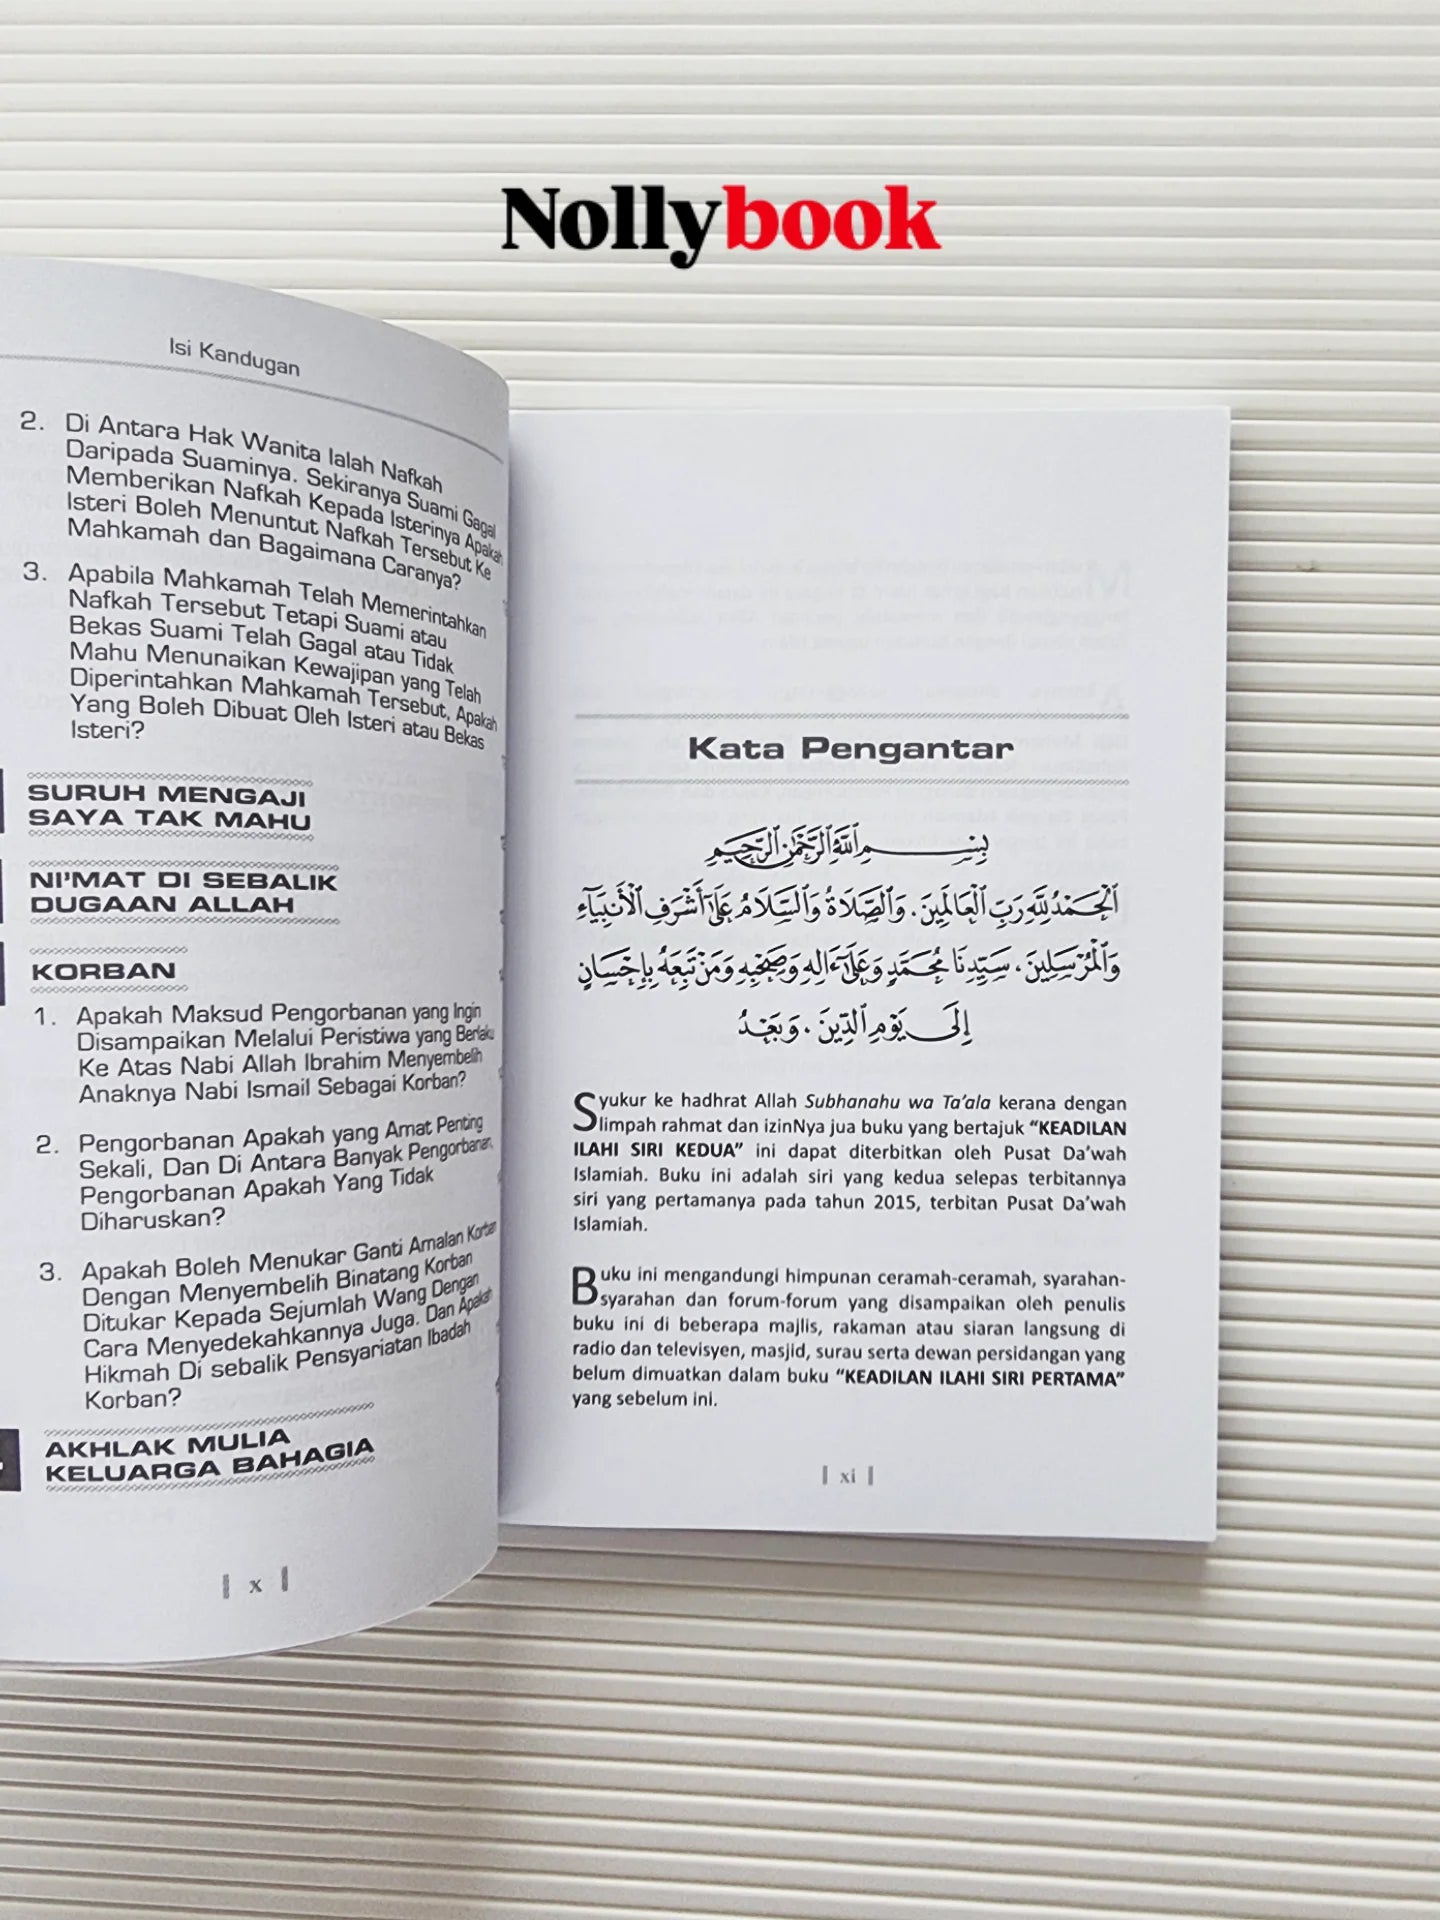 Nollybook
Isi Kandugan
2. Di Antara Hak Wanita Ialah Nafkah
Daripada Suaminya. Sekiranya Suami Gagal
Memberikan Nafkah Kepada Isterinya Apakah
Isteri Boleh Menuntut Nafkah Tersebut Ke
Mahkamah dan Bagaimana Caranya?
3. Apabila Mahkamah Telah Memerintahkan
Nafkah Tersebut Tetapi Suami atau
Bekas Suami Telah Gagal atau Tidak
Mahu Menunaikan Kewajipan yang Telah
Diperintahkan Mahkamah Tersebut, Apakah
Yang Boleh Dibuat Oleh Isteri atau Bekas
Isteri?
SURUH MENGAJI
SAYA TAK MAHU
NI'MAT DI SEBALIK
DUGAAN ALLAH
KORBAN
1. Apakah Maksud Pengorbanan yang Ingin
Disampaikan Melalui Peristiwa yang Berlaku
Ke Atas Nabi Allah Ibrahim Menyembelih
Anaknya Nabi Ismail Sebagai Korban?
2. Pengorbanan Apakah yang Amat Penting
Sekali, Dan Di Antara Banyak Pengorbanan,
Pengorbanan Apakah Yang Tidak
Diharuskan?
3. Apakah Boleh Menukar Ganti Amalan Korban
Dengan Menyembelih Binatang Korban
Ditukar Kepada Sejumlah Wang Dengan
Cara Menyedekahkannya Juga. Dan Apakah
Hikmah Di sebalik Pensyariatan Ibadah
Korban?
AKHLAK MULIA
KELUARGA BAHAGIA
x
Kata Pengantar
بِسْمِ اللَّهِ الرَّحْمَٰنِ الرَّحِيمِ
الْحَمْدُ لِلَّهِ رَبِّ الْعَالَمِينَ. وَالصَّلَاةُ وَالسَّلَامُ عَلَىٰ أَشْرَفِ الْأَنْبِيَاءِ
وَالْمُرْسَلِينَ، سَيِّدِنَا مُحَمَّدٍ وَعَلَىٰ ءَالِهِ وَصَحْبِهِ وَمَنْ تَبِعَهُ بِإِحْسَانٍ
إِلَىٰ يَوْمِ الدِّينِ. وَبَعْدُ
Syukur ke hadhrat Allah Subhanahu wa Ta'ala kerana dengan
limpah rahmat dan izinNya jua buku yang bertajuk “KEADILAN
ILAHI SIRI KEDUA” ini dapat diterbitkan oleh Pusat Da'wah
Islamiah. Buku ini adalah siri yang kedua selepas terbitannya
siri yang pertamanya pada tahun 2015, terbitan Pusat Da'wah
Islamiah.
Buku ini mengandungi himpunan ceramah-ceramah, syarahan-
syarahan dan forum-forum yang disampaikan oleh penulis
buku ini di beberapa majlis, rakaman atau siaran langsung di
radio dan televisyen, masjid, surau serta dewan persidangan yang
belum dimuatkan dalam buku “KEADILAN ILAHI SIRI PERTAMA”
yang sebelum ini.
xi